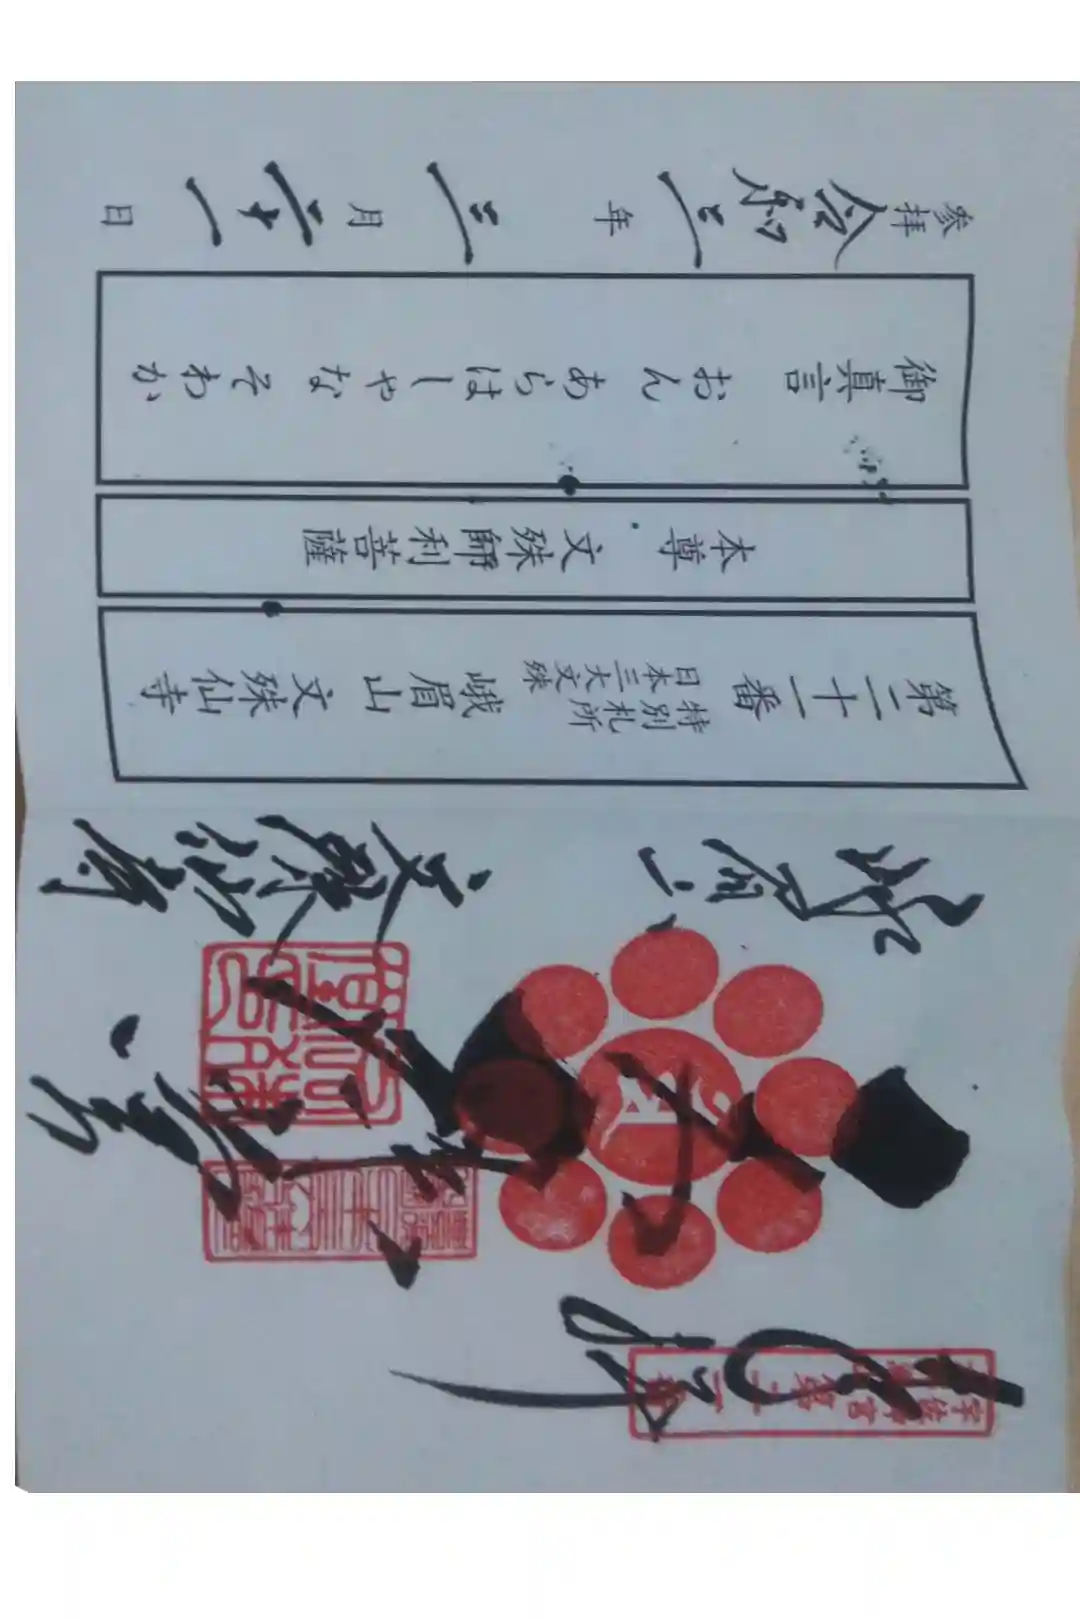 奉拝
峨眉山 文殊仙寺
第二十一番 特別札所 日本三大文殊 峨眉山 文殊仙寺
本尊 文殊師利菩薩
御真言 おん あらはしやな そわか
参拝 令和三年 三月 二十一日